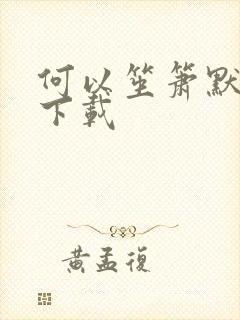 何以笙箫默
下载
黄孟復